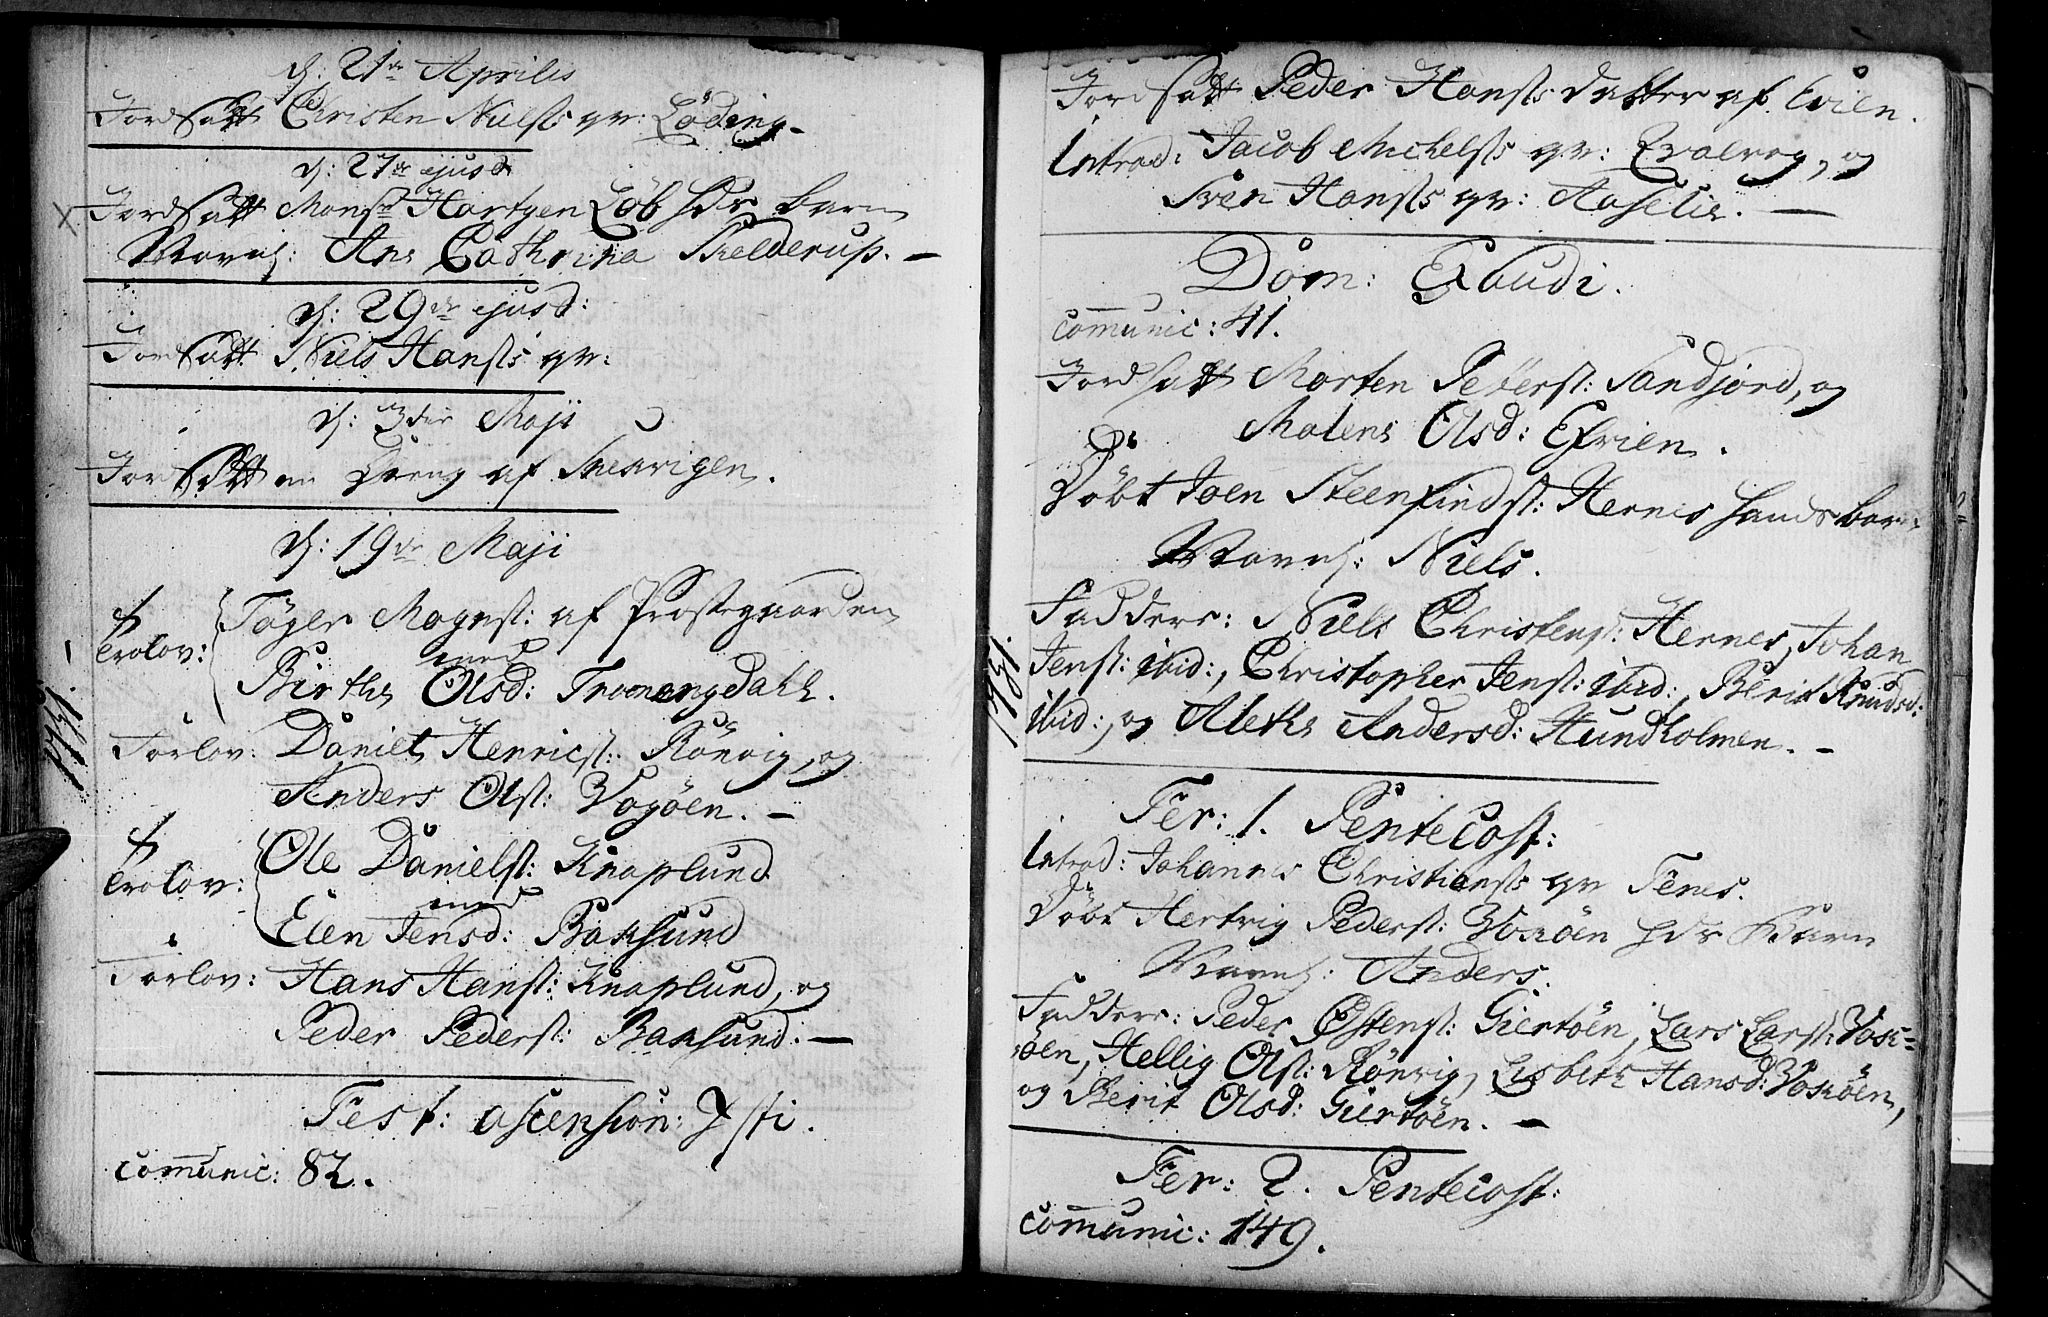 d: 21de Aprilis
Jordsatt Christen Nielss qv: Löding.
d: 27de ejusd
X Jordsatt Monsr Hartgen Löb hds barn
Navnl: Ane Cathrina Skelderup. —
d: 29de ejusd:
Jordsatt Niels Hanss qv:
d: 3die Maji
Jordsatt en Dreng af Skervigen.
d: 19de Maji
Töger Mognss: af Prostegaarden
Trolov: med
Birthe Olsd: Tromengdahl.
Forlov: Daniel Henricss: Rönvig, og
Anders Olss: Vogöen. —
Ole Danielss: Knaplund
Trolov: med
Elen Jensd: Baksund
Forlov: Hans Hanss: Knaplund, og
Peder Pederss: Baksund: —
Fest: ascension: Xsti.
comunic: 82.
1731.
Jordsatt Peder Hanss datter af Evien.
Introd: Jacob Michelss qv: Evalvog, og
Sven Hanss qv: Aaselie. —
Dom: Exaudi.
comunic: 41.
Jordsatt Morten Peterss: Sandjord, og
Malene Olsd: Efvien.
Döbt Joen Steenfindss: Hernes hands barn
Navnl: Niels.
Faddere: Niels Christenss: Hernes, Johan
Jenss: ibid:, Christopher Jenss: ibid:, Berit Knudsd:
ibid:, og Alethe Andersd: Hundholmen. —
1731.
Fer: 1. Pentecost:
Introd: Johannes Christianss qv Fenes.
Döbt Hertvig Pederss: Voxöen hds Barn
Navnl: Anders.
Faddere: Peder Östenss: Giertöen, Lars Larss: Vox=
öen, Hellig Olss: Rönvig, Lisbeth Hansd: Voxöen,
og Berit Olsd: Giertöen. —
Fer: 2. Pentecost:
comunic: 149.